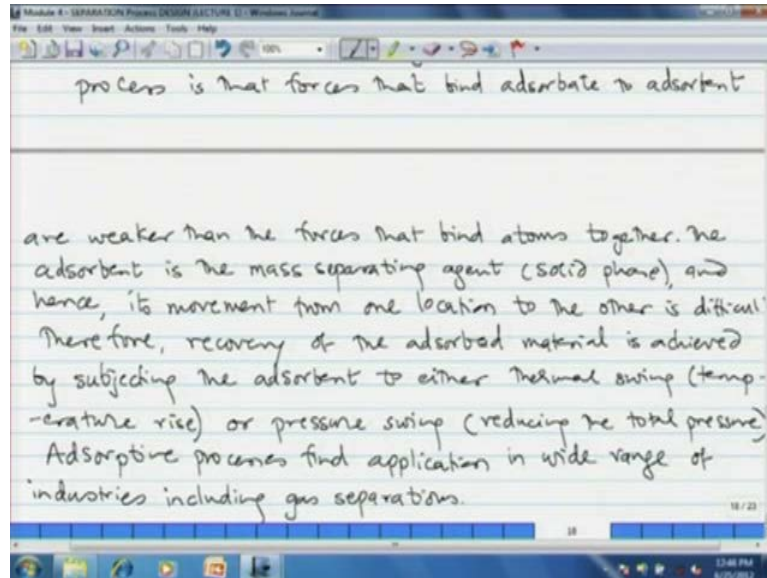 Module 4 - SEPARATION Process DESIGN (LECTURE 1) - Windows Journal
File Edit View Insert Actions Tools Help
100%
process is that forces that bind adsorbate to adsorbent
are weaker than the forces that bind atoms together. The
adsorbent is the mass separating agent (solid phase), and
hence, its movement from one location to the other is difficul
Therefore, recovery of the adsorbed material is achieved
by subjecting the adsorbent to either thermal swing (temp-
-erature rise) or pressure swing (reducing the total pressure)
Adsorptive processes find application in wide range of
industries including gas separations.
18 / 23
18
12:46 PM
6/25/2012